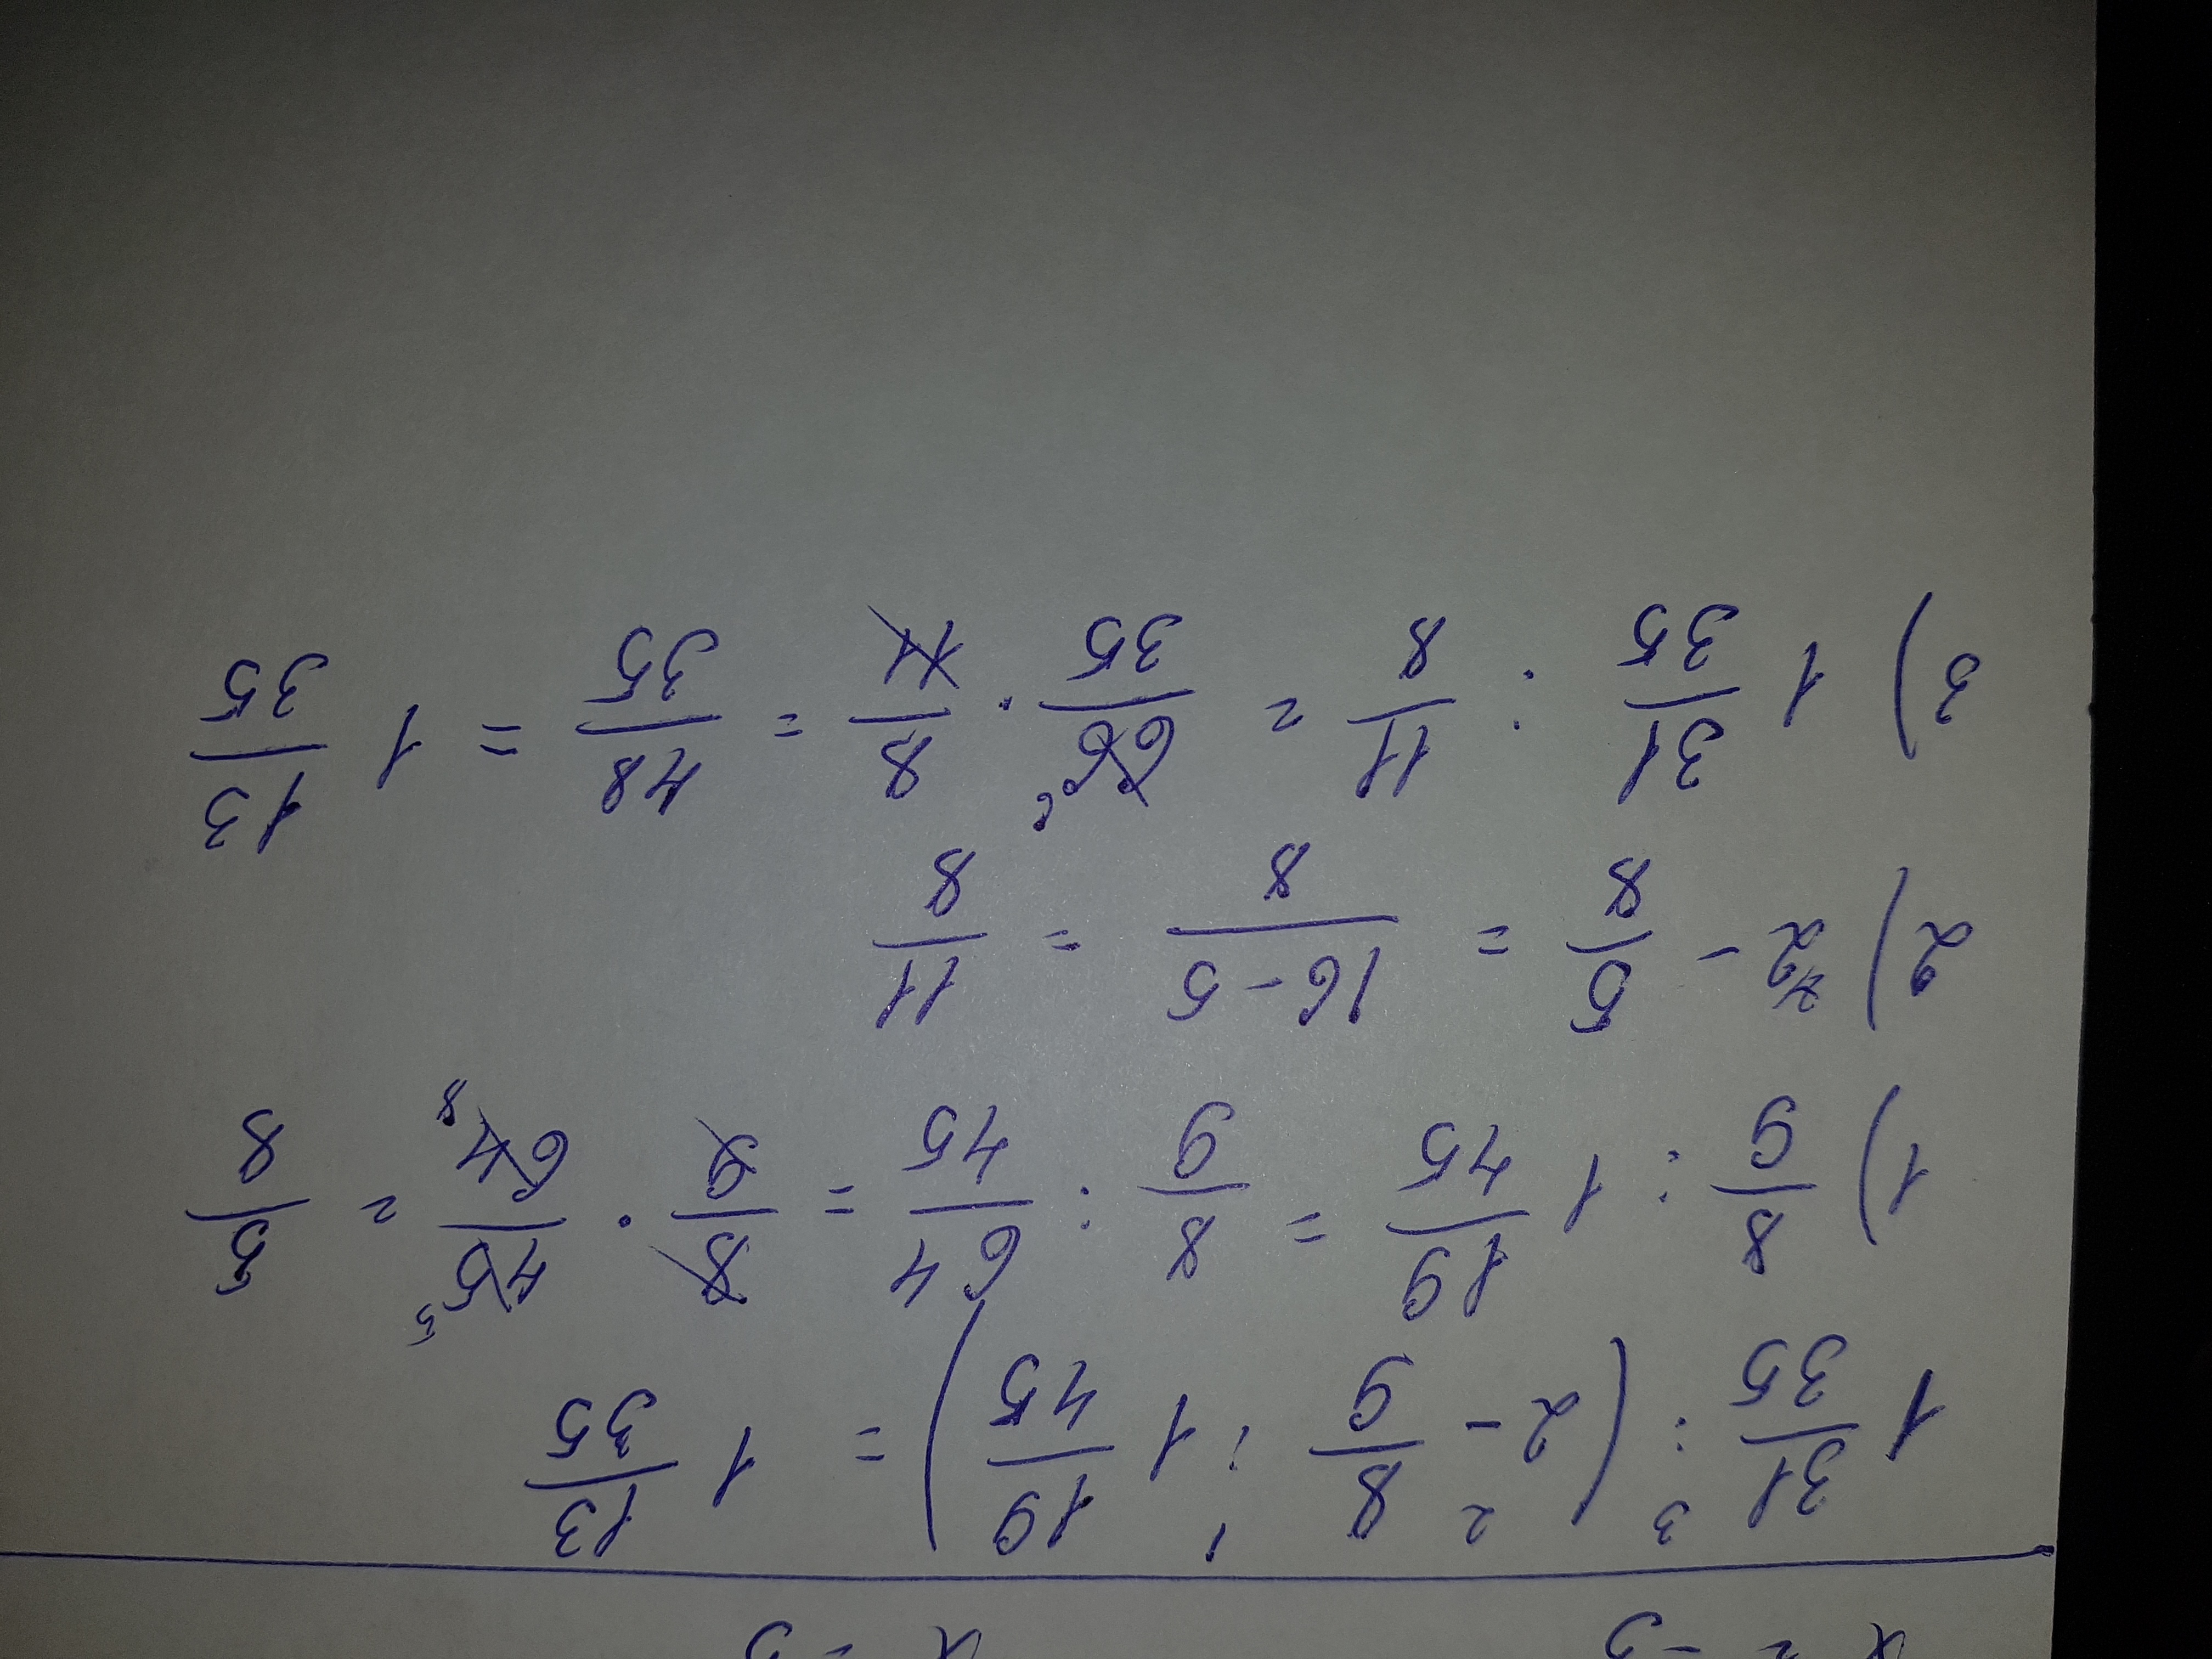 x = -3 x = 3
1 31/35 : (2 - 8/9 : 1 19/45) = 1 13/35
1) 8/9 : 1 19/45 = 8/9 : 64/45 = 8/9 · 45/64 = 5/8
2) 2 - 5/8 = (16-5)/8 = 11/8
3) 1 31/35 : 11/8 = 66/35 · 8/11 = 48/35 = 1 13/35